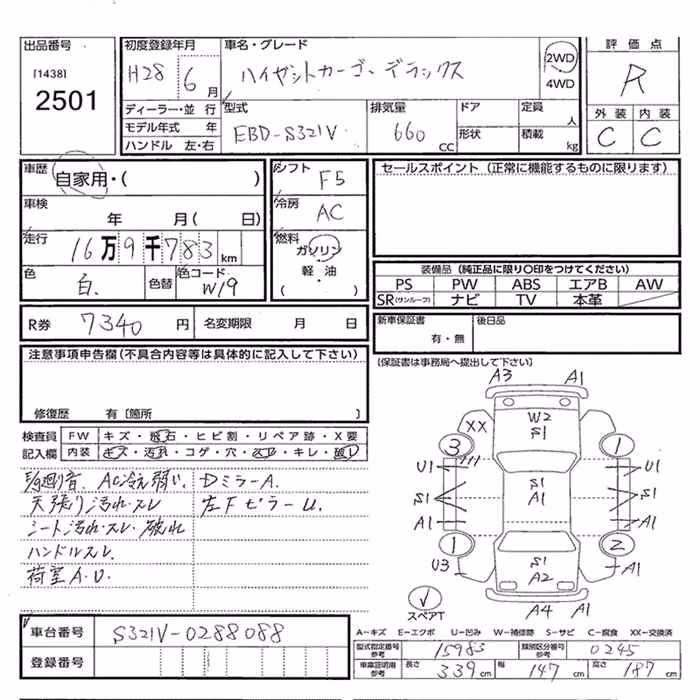 出品番号
[1438]
2501
初度登録年月
H28 6月
車名・グレード
ハイゼットカーゴ デラックス
2WD
4WD
評価点
R
ディーラー・並行
モデル年式 年
ハンドル 左・右
型式
EBD-S321V
排気量
660
CC
ドア
形状
定員
人
積載
kg
外装 内装
C C
車歴
自家用・( )
車検
年 月( 日)
走行
16万9千783km
色
白.
色替
色コード
W19
シフト
F5
冷房
AC
燃料
ガソリン
軽・油
( )
セールスポイント (正常に機能するものに限ります)
装備品 (純正品に限り〇印をつけてください)
PS PW ABS エアB AW
SR(サンルーフ) ナビ TV 本革
R券 7340円 名変期限 月 日
新車保証書
有・無
後日品
(保証書は事務局へ提出して下さい)
注意事項申告欄(不具合内容等は具体的に記入して下さい)
修復歴 有〔箇所 〕
検査員 FW キズ・飛石・ヒビ割・リペア跡・X要
記入欄 内装 キズ・汚れ・コゲ・穴・スレ・キレ・破レ
AC冷え弱い. DミラーA.
天張り汚れ・スレ 左FピラーU.
シート汚れ・スレ・破れ
ハンドルスレ.
荷室A.U.
A3 A1
XX W2
S1
3 1
U1 U1
S1 S1 S1
A1
A1 A1
1 2
U3 S1 A1
A2
A4 A1
スペアT
車台番号 S321V-0288088
登録番号
A-キズ E-エクボ U-凹み W-補修跡 S-サビ C-腐食 XX-交換済
型式指定番号 参考 15983 類別区分番号 参考 0245
車庫証明用 参考 長さ 339cm 幅 147cm 高さ 187cm